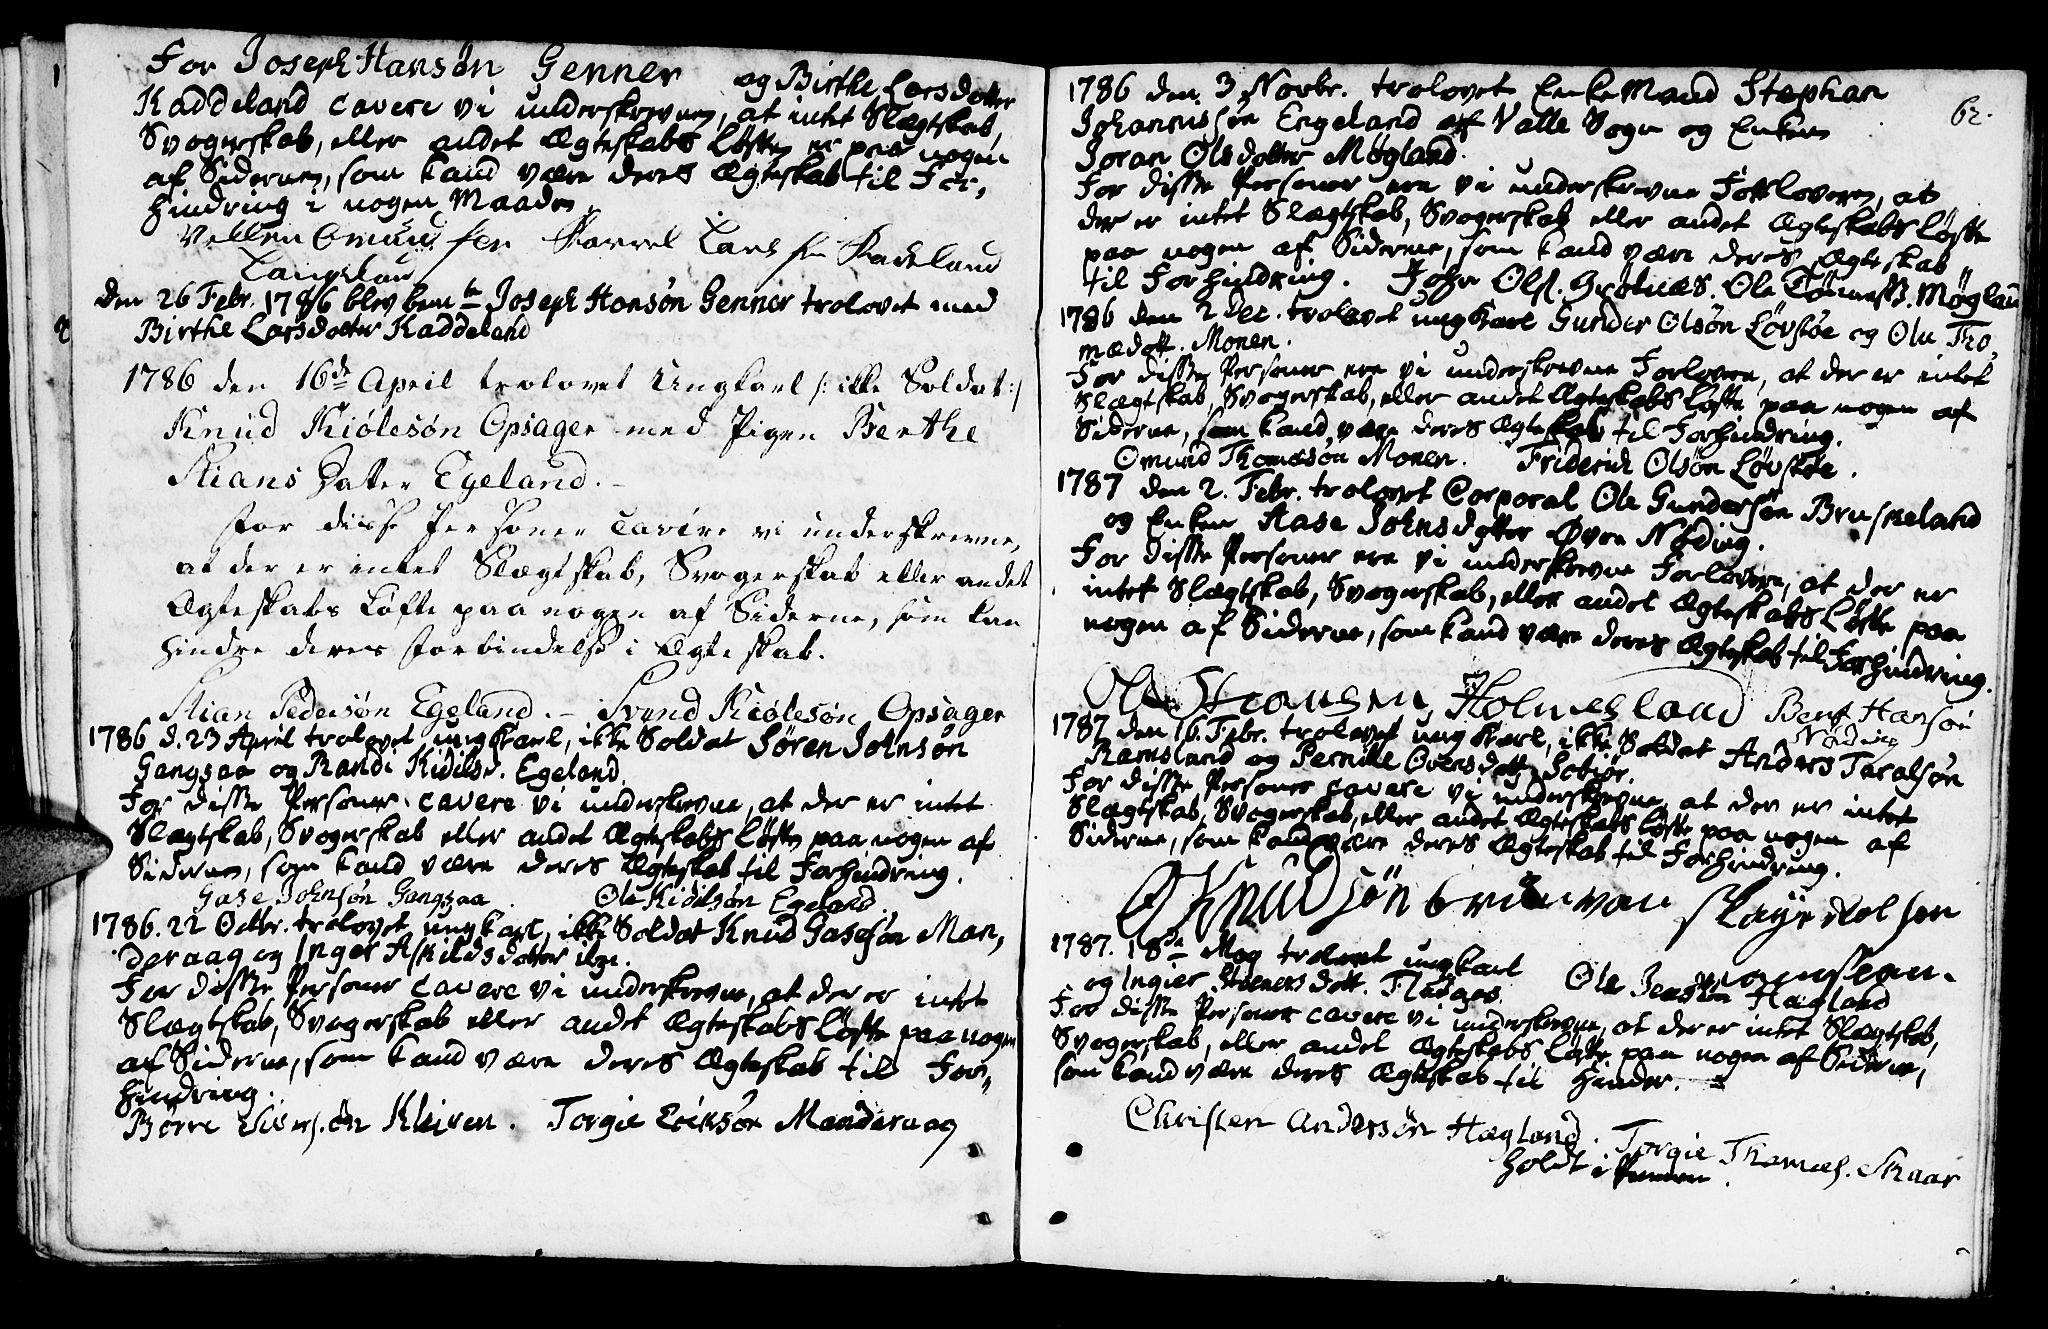 For Joseph Hansøn Genner og Birthe Larsdotter
Kaddeland cavere vi underskrevnen, at intet Slægtskab,
Svogerskab, eller andet Ægteskabs Løfte er paa nogen
af Siderne, som kand være deres Ægteskab til For,
hindring i nogen Maade.
Vellem Omund sen Taarel Lars sen Kadeland
Langeland
Den 26 Febr. 1786 blev bemte Joseph Honsøn Genner trolovet med
Birthe Larsdotter Kaddeland
1786 den 16de April trolovet Ungkarl /: ikke Soldat :/
Knud Kiølesøn Opsager med Pigen Berthe
Stians Datter Egeland.
For disse Personer cavere vi underskrevne,
at der er intet Slægtskab, Svogerskab eller andet
Ægteskabs Løfte paa nogen af Siderne, som kan
hindre deres Forbindelse i Ægteskab.
Stian Pedersøn Egeland. – Svend Kiølesøn Opsager
1786 d. 23 April trolovet ungkarl, ikke Soldat Søren Johnsøn
Gangsaa og Randi Kidilsd. Egeland.
For disse Personer cavere vi underskrevne, at der er intet
Slægtskab, Svogerskab eller andet Ægteskabs Løfte paa nogen af
Siderne, som kand være deres Ægteskab til Forhindring.
Gase Johnsøn Gangsaa. Ole Kidilsøn Egeland.
1786. 22 Octbr. trolovet ungkarl, ikke Soldat Knud Gasesøn Man,
deraag og Inger Askilds dotter ibm.
For disse Personer cavere vi underskrevne, at der er intet
Slægtskab, Svogerskab eller andet Ægteskabs Løfte paa nogen
af Siderne, som kand være deres Ægteskab til For,,
hindring.
Børre Sivers.øn Kleiven. Torgie Ericsøn Manderaag
62.
1786 den 3 Novbr. trolovet Enke Mand Stephan
Johannissøn Engeland af Valle Sogn og Enken
Joran Olsdotter Møgland.
For disse Personer ere vi underskrevne Forlovere, at
der er intet Slægtskab, Svogerskab eller andet Ægteskabs Løfte
paa nogen af Siderne, som kand være deres Ægteskab
til Forhindring. John Ols. Grotnæs. Ole Tønness. Møgland
1786 den 2 Dec. trolovet ungkarl Gunder Olsøn Løvstøe og Olu Tho,
mædott. Monen.
For disse Personer ere vi underskrevne Forlovere, at der er intet
Slægtskab, Svogerskab, eller andet Ægteskabs Løfte paa nogen af
Siderne, som kand være deres Ægteskab til Forhindring.
Omund Thomæsøn Monen. Friderich Olsøn Løvstøe.
1787 den 2. Febr. trolovet Corporal Ole Gundersøn Bruskeland
og Enken Aase Johnsdotter Øvre Nøding.
For disse Personer ere vi underskrevne Forlovere, at der er
intet Slægtskab, Svogerskab, eller andet Ægteskabs Løfte paa
nogen af Siderne, som kand være deres Ægteskab til Forhindring.
Ole Holmesland Bent Hansøn
Nøding
1787 den 16. Febr. trolovet ungkarl, ikke Soldat Anders Taralsøn
Ramsland og Pernille Overs dotter
For disse Personer cavere vi underskrevne, at der er intet
Slægtskab, Svogerskab, eller andet Ægteskabs Løfte paa nogen af
Siderne, som kand være deres Ægteskab til Forhindring.
Knudsøn
1787. 18de May trolovet ungkarl Ole Jensøn Hægland
og Ingier Steenersdott. Fladages.
For disse Personer cavere vi underskrevne, at der er intet Slægtskab,
Svogerskab, eller andet Ægteskabs Løfte paa nogen af Siderne,
som kand være deres Ægteskab til Hinder.
Christen Andersøn Hægland. Torgie Thomæs. Skaar
holdt i Pennen.